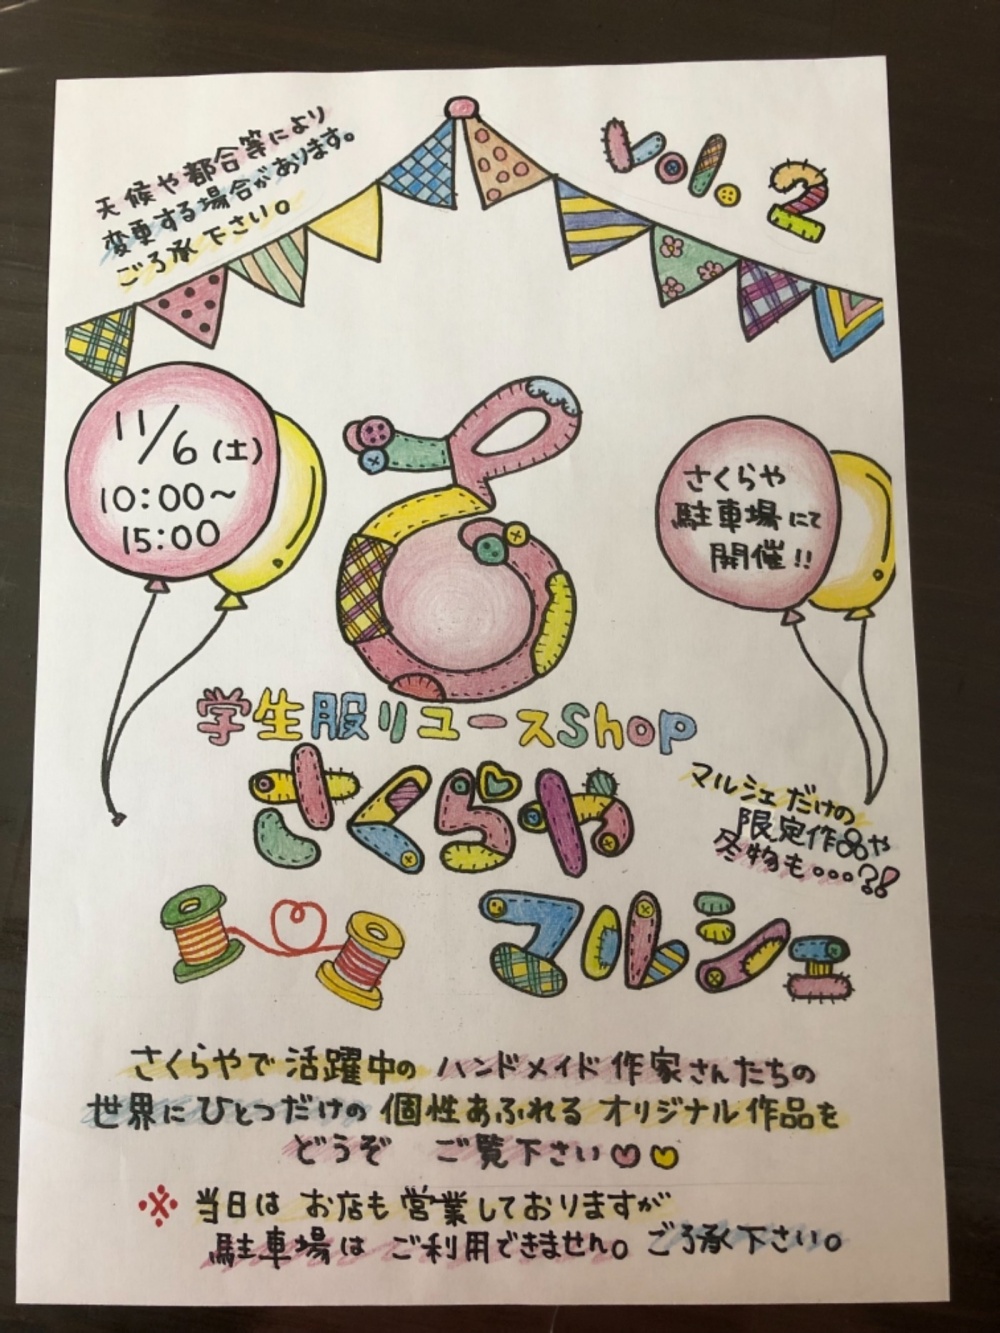 天候や都合等により
変更する場合があります。
ご了承下さい。
vol.2
11/6(土)
10:00〜
15:00
さくらや
駐車場にて
開催!!
学生服リユースShop
さくらや
マルシェだけの
限定作品や
冬物も...?!
マルシェ
さくらやで活躍中のハンドメイド作家さんたちの
世界にひとつだけの個性あふれるオリジナル作品を
どうぞ ご覧下さい♡♡
※当日はお店も営業しておりますが
駐車場はご利用できません。ご了承下さい。